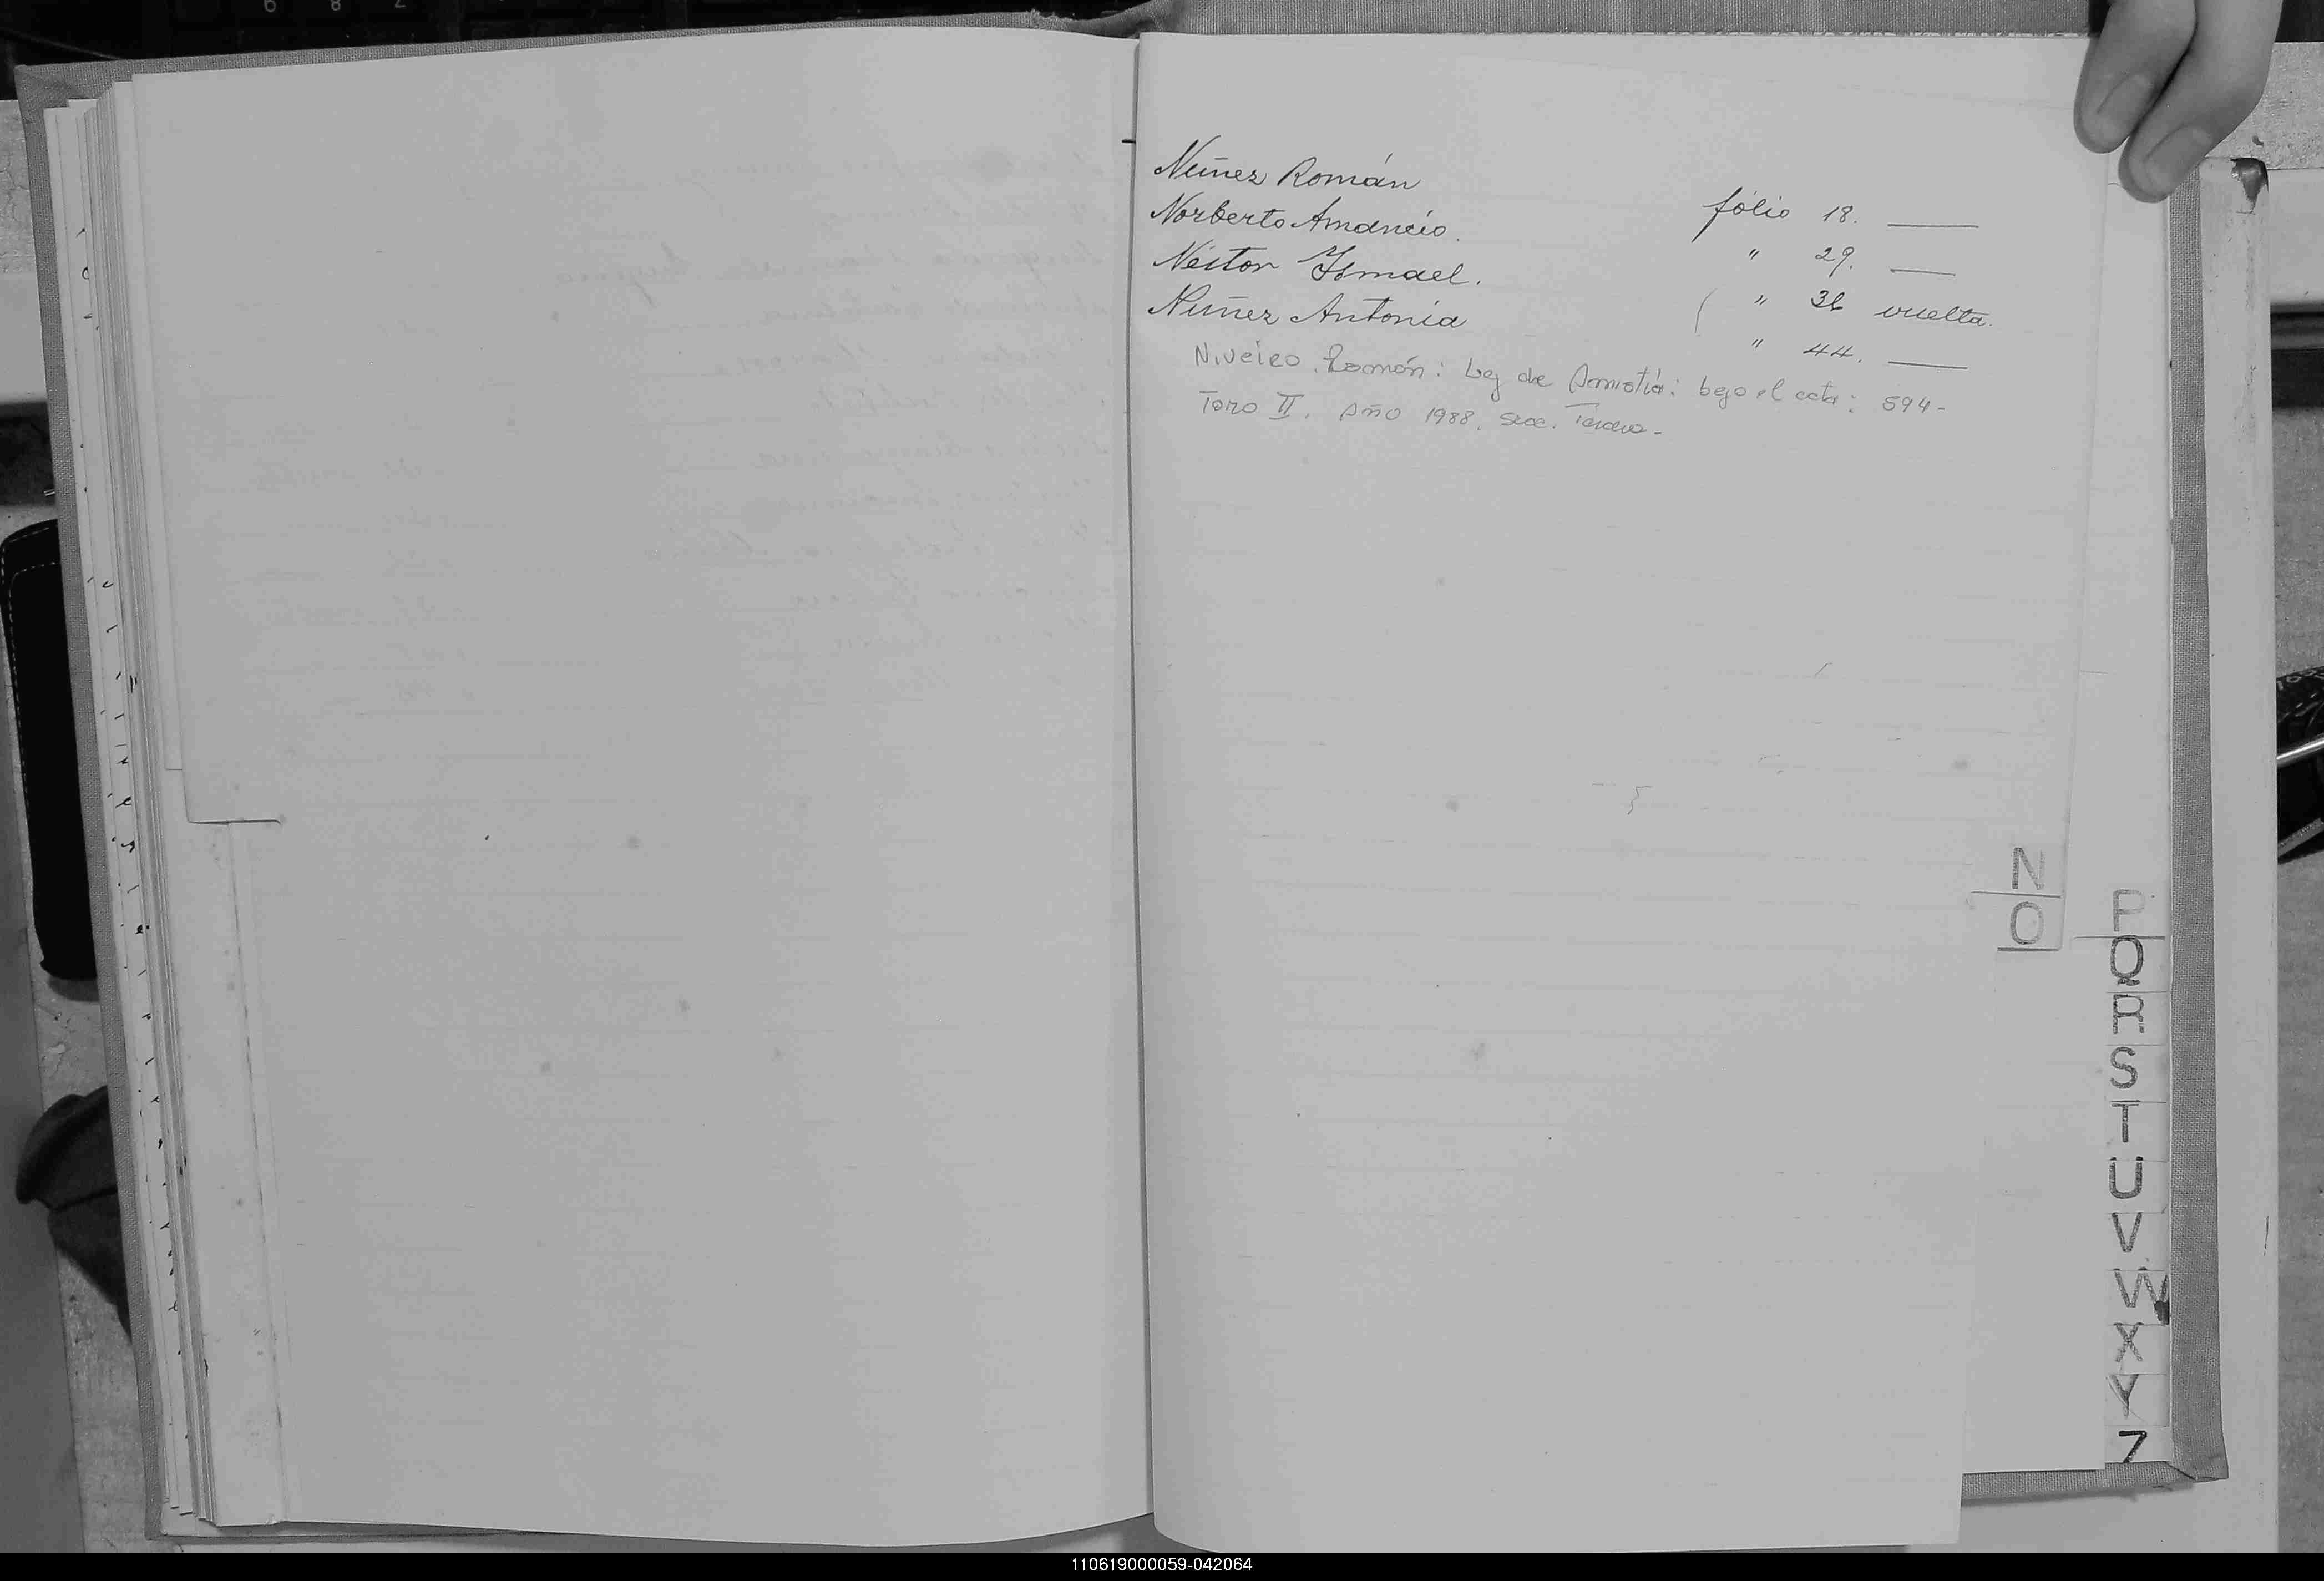 Nuñez Román fólio 18.
Norberto Amancio. " 29.
Néstor Ismael. " 36 vuelta.
Nuñez Antonia " 44.
Niveiro Ramón: Ley de Amnistía: bajo el acta: 594-
Tomo II. Año 1988. Secc. Tercera-
N
O
P
Q
R
S
T
U
V
W
X
Y
Z
110619000059-042064